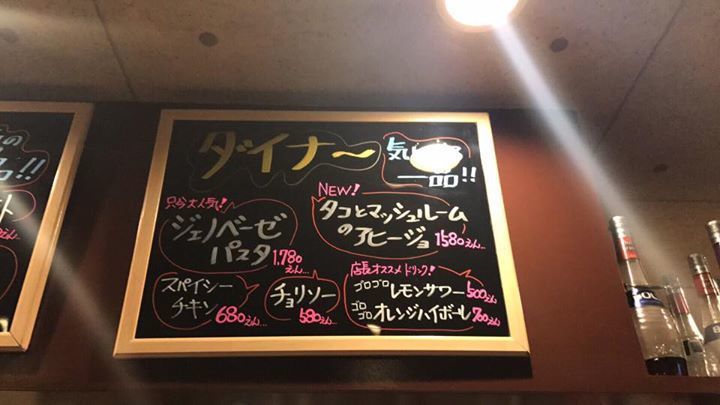 の
品!!
ダイナ〜
気
一品!!
只今大人気!
ジェノベーゼ
パスタ
1,780
えん...
NEW!
タコとマッシュルーム
のアヒージョ
1580えん...
スパイシー
チキン
680えん...
チョリソー
580えん...
店長オススメドリンク!
ゴロゴロ レモンサワー 500えん
ゴロ
ゴロ オレンジハイボール 700えん